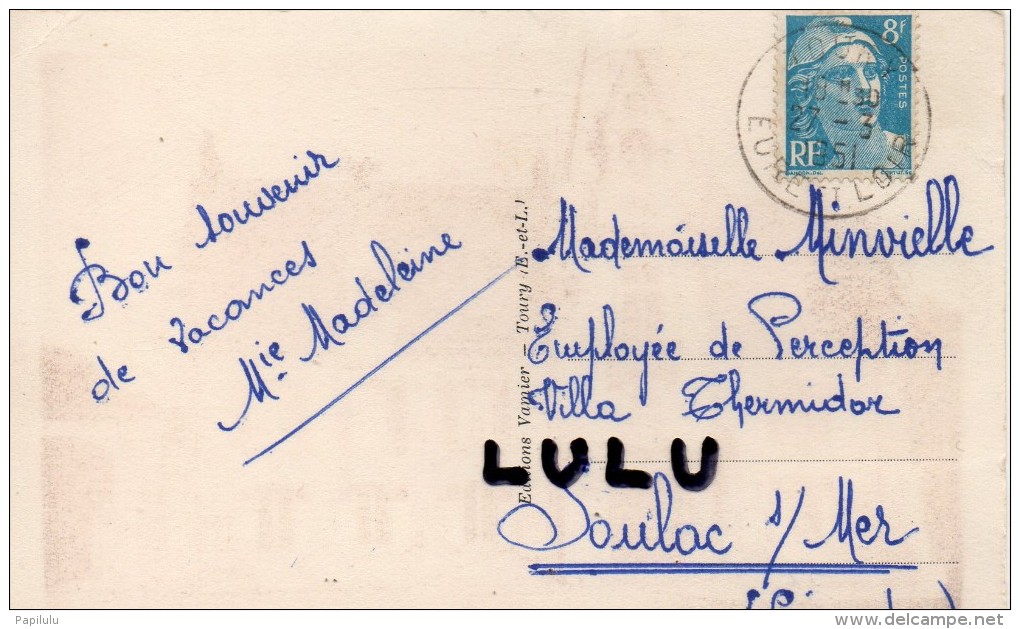 Bon souvenir
de vacances
Mie Madeleine
Editions Vamier – Toury (E.-et-L.)
8F
POSTES
RF
27 - 3
1951
EURE ET LOIR
Mademoiselle Minvielle
Employée de Perception
Villa Thermidor
LULU
Soulac s/ Mer
Papilulu
delcampe.net